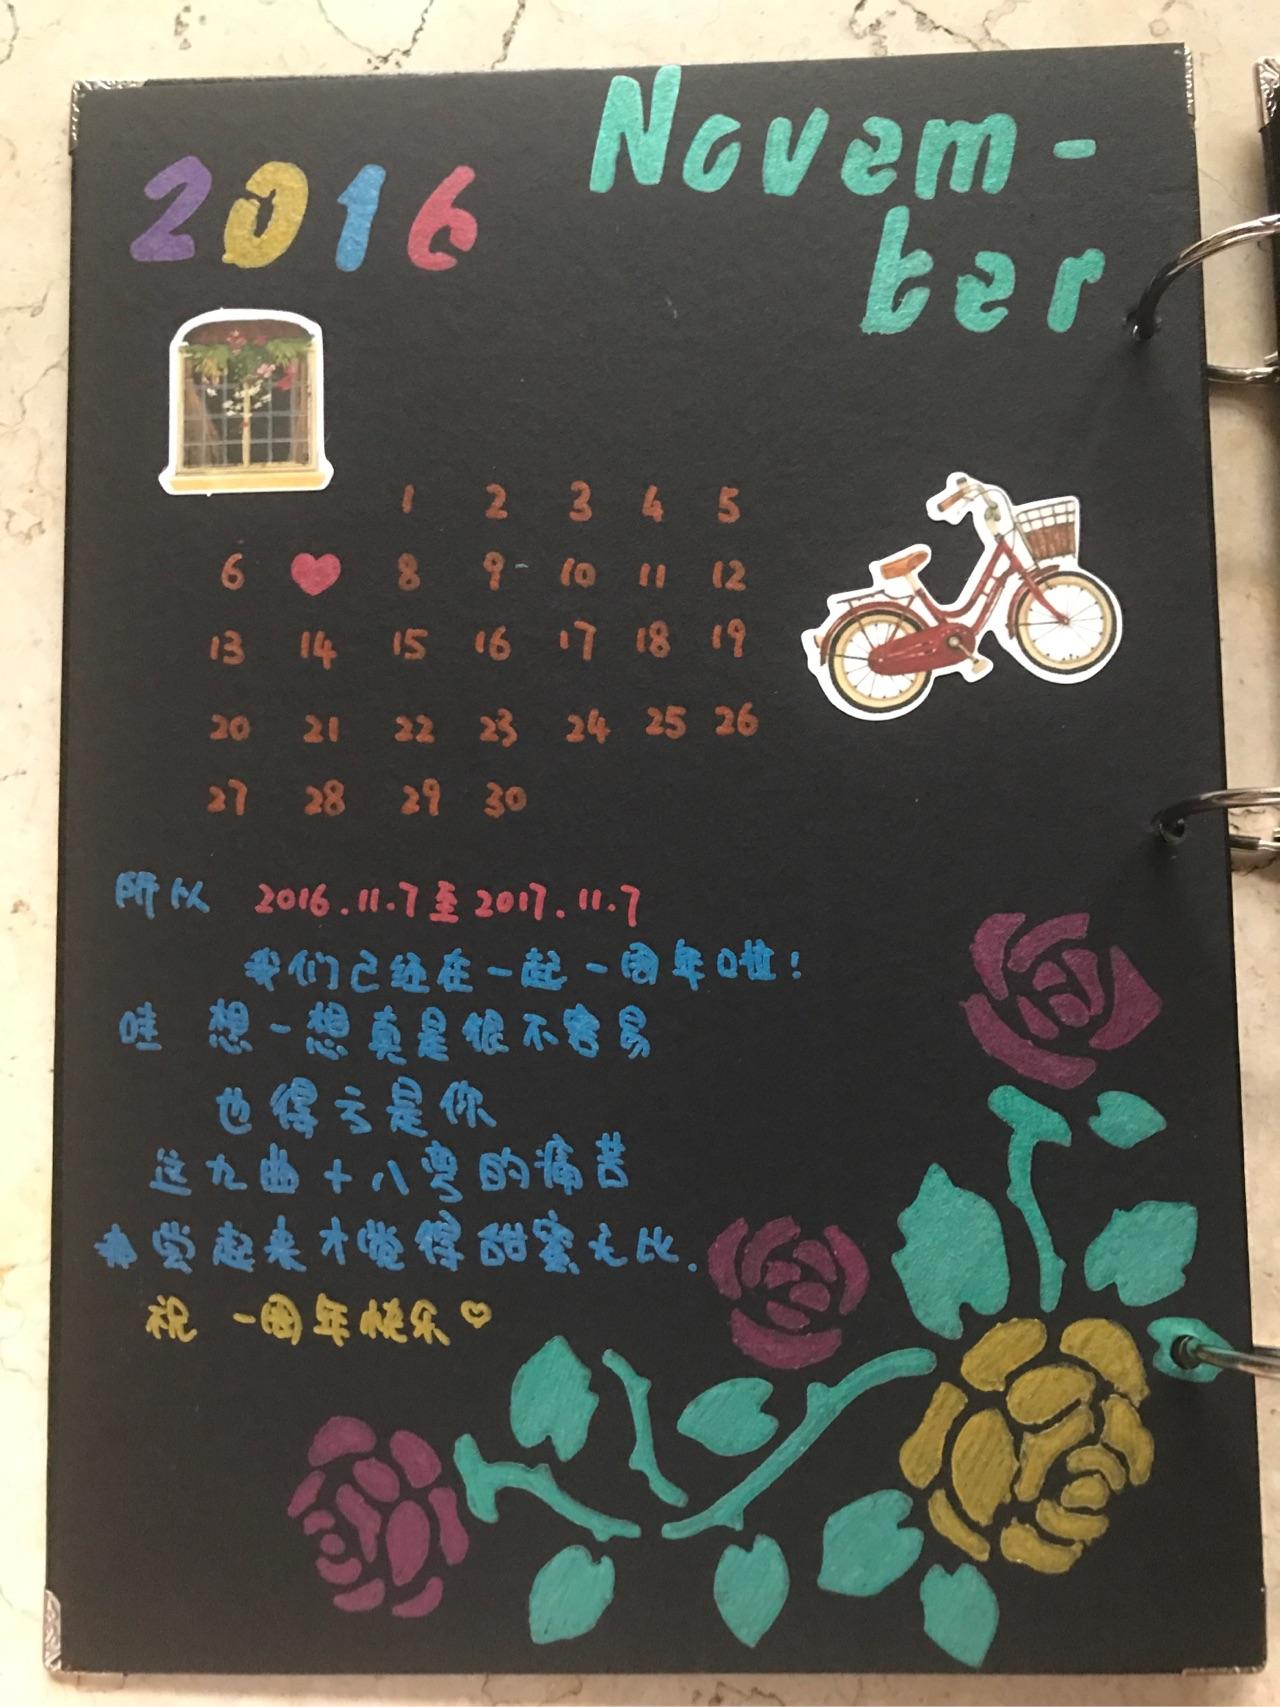 2016
Novem-
ber
1 2 3 4 5
6 ♥ 8 9 10 11 12
13 14 15 16 17 18 19
20 21 22 23 24 25 26
27 28 29 30
所以 2016.11.7至2017.11.7
我们已经在一起一周年啦!
哇 想一想真是很不容易
也得亏是你
这九曲十八弯的痛苦
尝起来才觉得甜蜜无比.
祝 一周年快乐♡